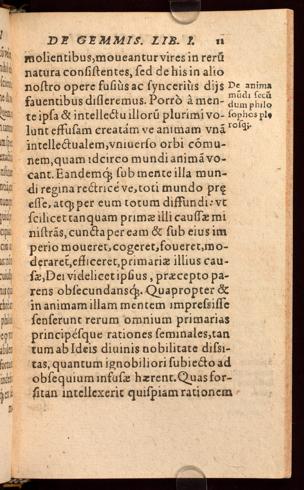 DE GEMMIS. LIB. I. 11
molientibus, moueantur vires in rerũ
natura consistentes, sed de his in alio
nostro opere fusiùs ac synceriùs dijs
fauentibus disseremus. Porrò à men-
te ipsa & intellectu illorũ plurimi vo-
lunt effusam creatám ve animam vnã
intellectualem, vniuerso orbi cõmu-
nem, quam idcirco mundi animã vo-
cant. Eandemq; sub mente illa mun-
di regina rectricé ve, toti mundo prę
esse, atq; per eum totum diffundi: vt
scilicet tanquam primæ illi caussæ mi
nistrãs, cuncta per eam & sub eius im
perio moueret, cogeret, foueret, mo-
deraret, efficeret, primariæ illius cau-
sæ, Dei videlicet ipsius, præcepto pa-
rens obsecundansq;. Quapropter &
in animam illam mentem impressisse
senserunt rerum omnium primarias
principésque rationes seminales, tan
tum ab Ideis diuinis nobilitate dissi-
tas, quantum ignobiliori subiecto ad
obsequium infusæ hærent. Quas for-
sitan intellexerit quispiam rationem
De anima
mũdi secũ
dum philo
sophos ple
rosq;.